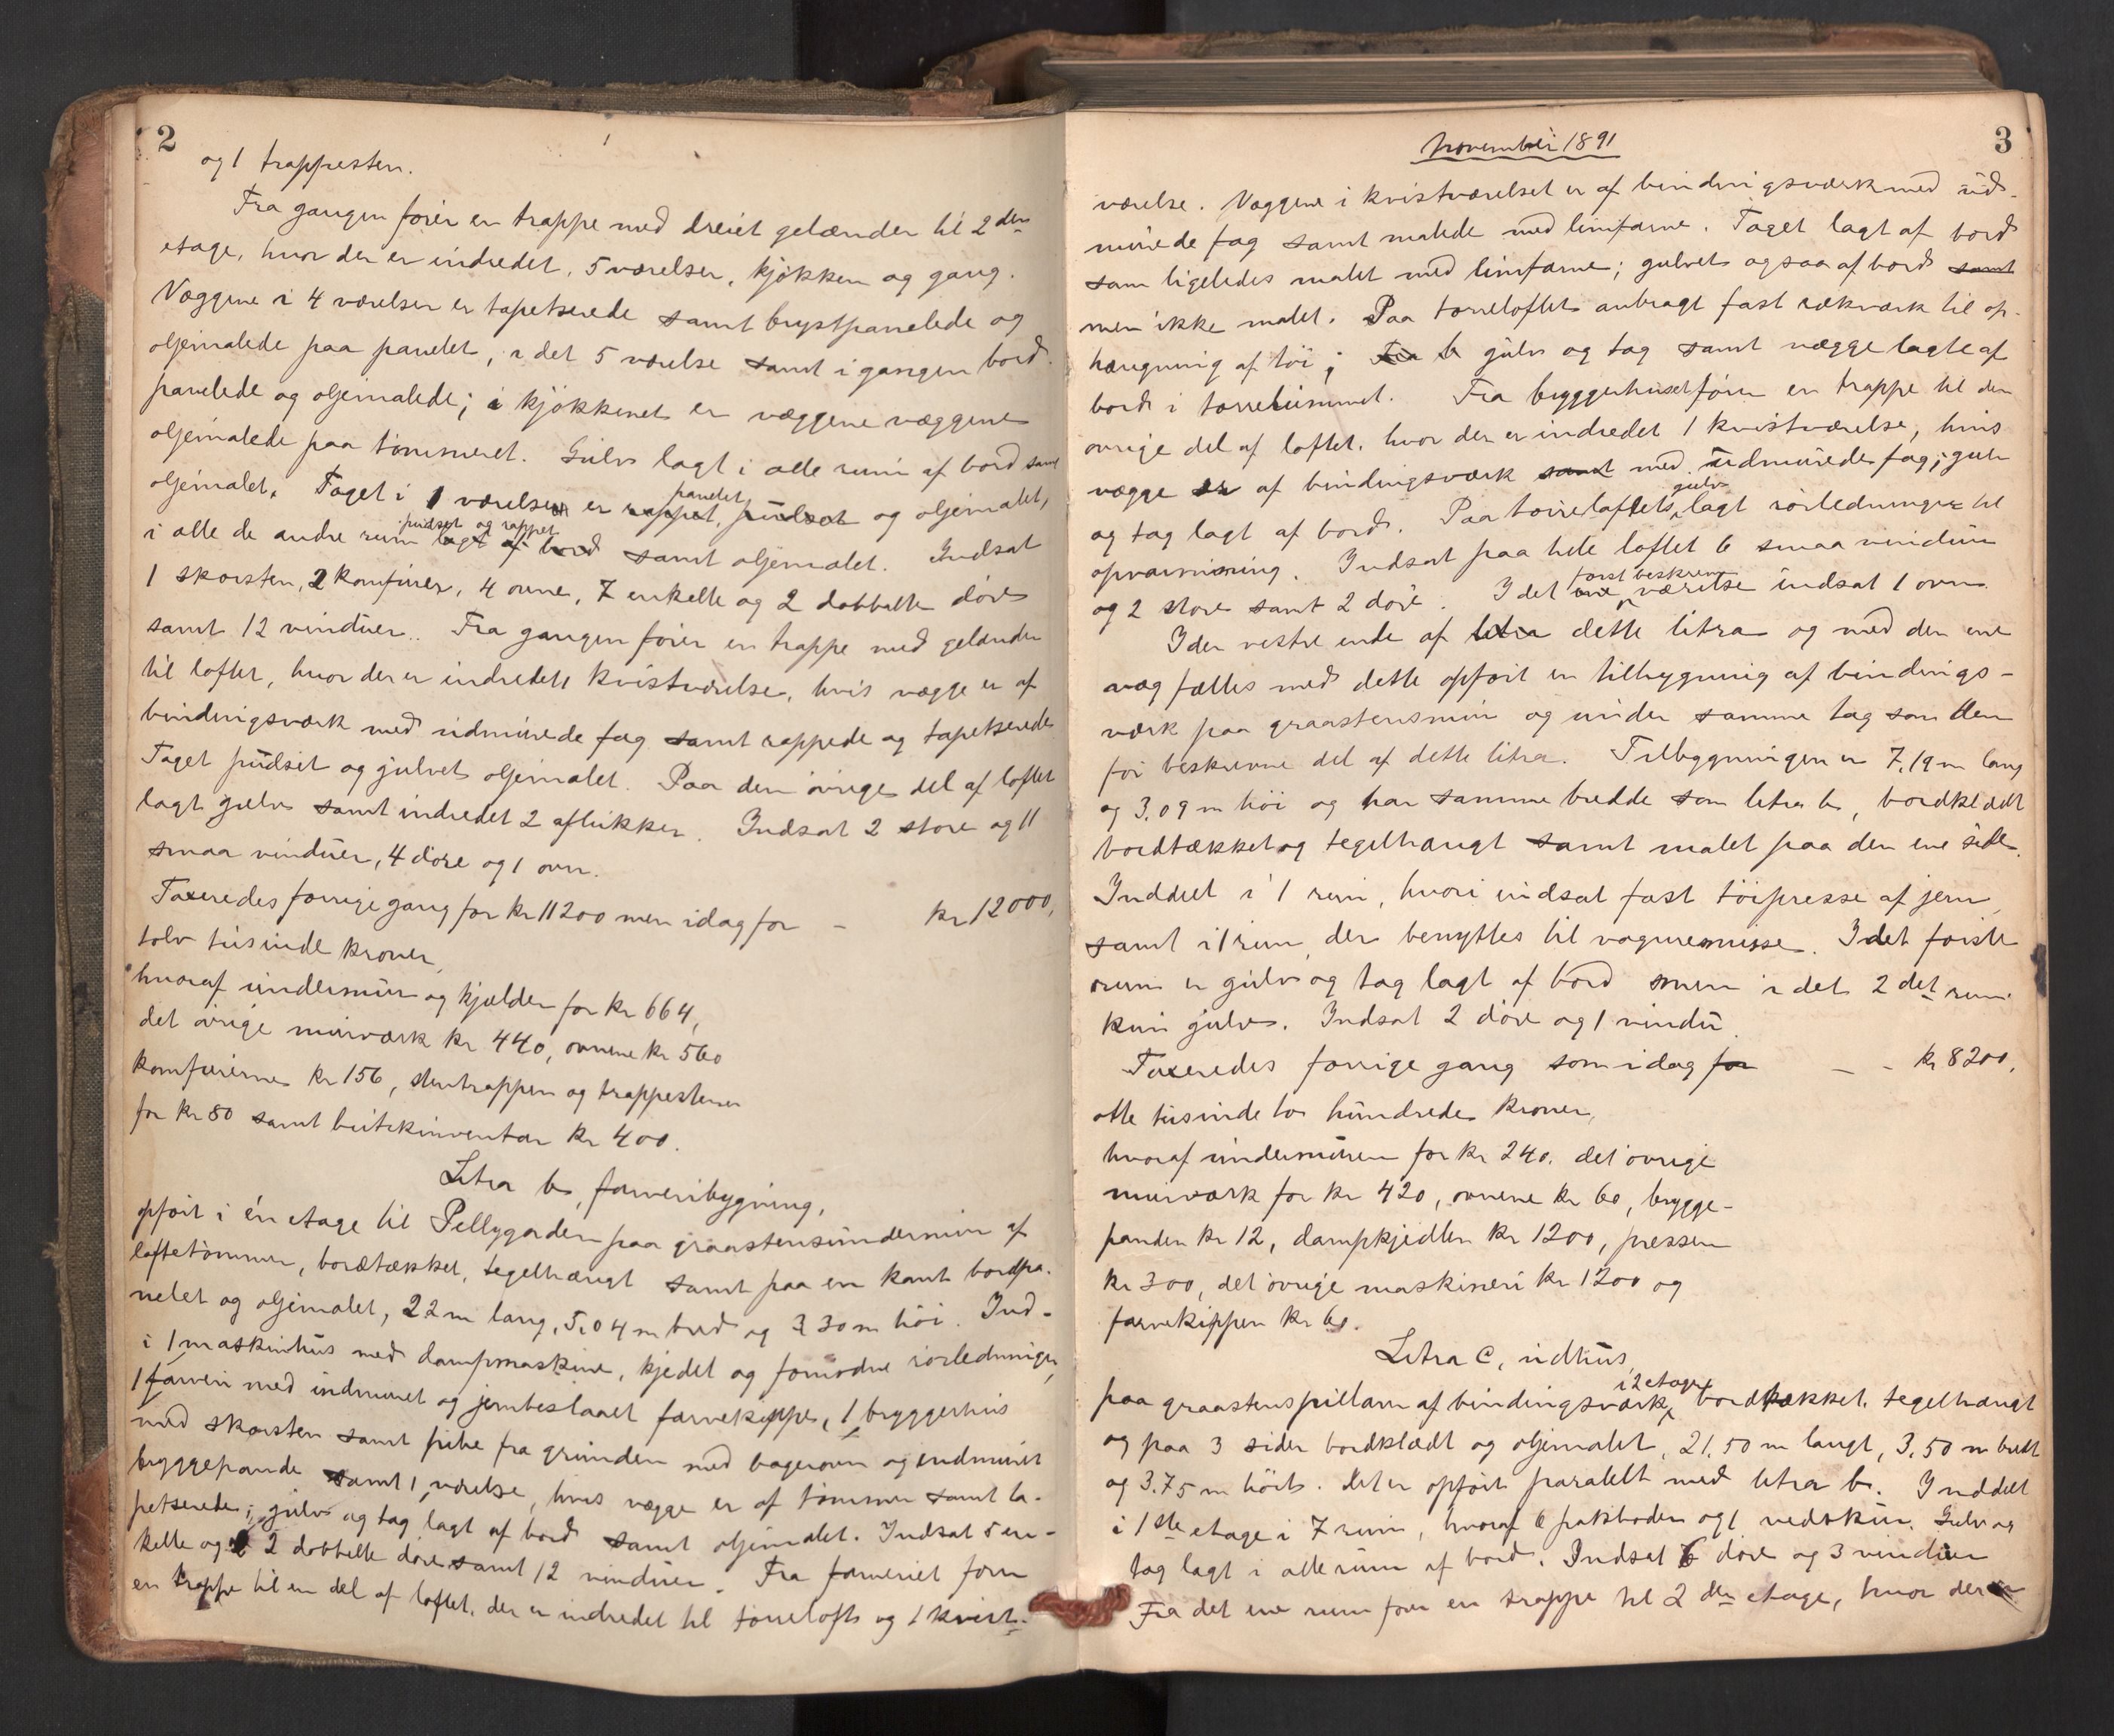 2
og 1 trappesten.
Fra gangen fører en trappe med dreiet gelænder til 2den
etage, hvor der er indredet 5 værelser, kjøkken og gang.
Væggene i 4 værelser er tapetserede samt brystpanelede og
oljemalede paa panelet, i det 5 værelse samt i gangen bord-
panelede og oljemalede; i kjøkkenet er væggene væggene
oljemalede paa tømmeret. Gulv lagt i alle rum af bord samt
oljemalet. Taget i 1 værelse er rappet, pudset panelet og oljemalet,
i alle de andre rum lagt af bord pudset og rappet samt oljemalet. Indsat
1 skorsten, 2 komfurer, 4 ovne, 7 enkelte og 2 dobbelte døre
samt 12 vinduer. Fra gangen fører en trappe med gelænder
til loftet, hvor der er indredet 1 kvistværelse, hvis vægge er af
bindingsværk med udmurede fag samt rappede og tapetserede
Taget pudset og gulvet oljemalet. Paa den øvrige del af loftet
lagt gulv samt indredet 2 aflukker. Indsat 2 store og 11
smaa vinduer, 4 døre og 1 ovn.
Taxeredes forrige gang for kr 11200 men idag for - kr 12000,
tolv tusinde kroner,
hvoraf undermur og kjælder for kr 664,
det øvrige murværk kr 440, ovnene kr 560
komfurerne kr 156, stentrappen og trappestenen
for kr 80 samt butikinventar kr 400.
Litra b, farveribygning,
opført i én etage til Pellygaarden paa graastensundermur af
loftetømmer, bordtækket, tegelhængt samt paa en kant bordpa-
nelet og oljemalet, 22 m lang, 5,04 m bred og 3,30 m høi. Ind-
i 1 maskinhus med dampmaskine, kjedel og fornødne rørledninger,
1 farveri med indmuret og jernbeslaaet farvekippe, 1 bryggerhus
med skorsten samt pibe fra grunden med bagerovn og indmuret
bryggepande samt 1 værelse, hvis vægge er af tømmer samt ta-
petserede; gulv og tag lagt af bord samt oljemalet. Indsat 5 en-
kelte og 2 dobbelte døre samt 12 vinduer. Fra farveriet fører
en trappe til en del af loftet, der er indredet til tørreloft og 1 kvist-
3
November 1891
værelse. Væggene i kvistværelset er af bindingsværk med ud-
murede fag samt malede med limfarve. Taget lagt af bord
som ligeledes malet med limfarve; gulvet ogsaa af bord samt
men ikke malet. Paa tørreloftet anbragt fast rækværk til op-
hængning af tøi; gulv og tag samt vægge lagte af
bord i tørrerummet. Fra bryggerhuset fører en trappe til den
øvrige del af loftet, hvor der er indredet 1 kvistværelse, hvis
vægge er af bindingsværk samt med udmurede fag; gulv
og tag lagt af bord. Paa tørreloftets gulv lagt rørledninger til
opvarmning. Indsat paa hele loftet 6 smaa vinduer
og 2 store samt 2 døre. I det ene først beskrevne værelse indsat 1 ovn.
I den vestre ende af litra dette litra og med den ene
væg fælles med dette opført en tilbygning af bindings-
værk paa graastensmur og under samme tag som den
før beskrevne del af dette litra. Tilbygningen er 7,19 m lang
og 3,09 m høi og har samme bredde som litra b, bordklædt
bordtækket og tegelhængt samt malet paa den ene side.
Inddelt i 1 rum, hvori indsat fast tøipresse af jern
samt i 1 rum, der benyttes til vognremisse. I det første
rum er gulv og tag lagt af bord men i det 2det rum
kun gulv. Indsat 2 døre og 1 vindu.
Taxeredes forrige gang som idag for - - kr 8200,
otte tusinde to hundrede kroner,
hvoraf undermuren for kr 240, det øvrige
murværk for kr 420, ovnene kr 60, brygge-
panden kr 12, dampkjedlen kr 1200, pressen
kr 300, det øvrige maskineri kr 1200 og
farvekippen kr 60.
Litra C, udhus,
paa graastenspillarer af bindingsværk i 2 etager, bordtækket, tegelhængt
og paa 3 sider bordklædt og oljemalet, 21,50 m langt, 3,50 m bredt
og 3,75 m høit. Det er opført paralelt med litra b. Inddelt
i 1ste etage i 7 rum, hvoraf 6 pakboder og 1 vedskur. Gulv og
tag lagt i alle rum af bord. Indsat 6 døre og 3 vinduer
Fra det ene rum fører en trappe til 2den etage, hvor der er